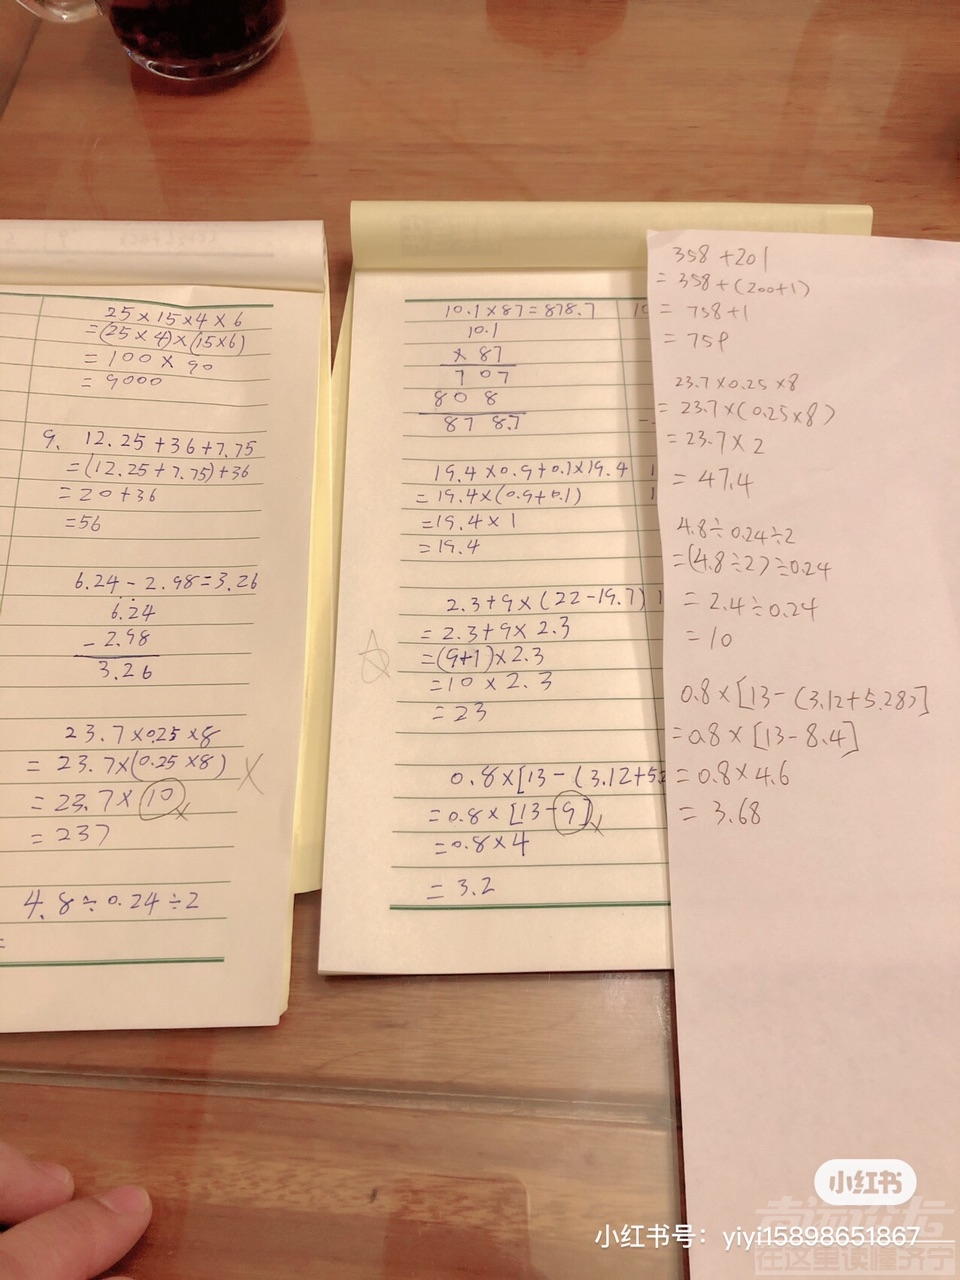 25×15×4×6
=(25×4)×(15×6)
=100×90
=9000
9. 12.25+36+7.75
=(12.25+7.75)+36
=20+36
=56
6.24-2.98=3.26
6.24
-2.98
3.26
23.7×0.25×8
=23.7×(0.25×8)
=23.7×10
=237
4.8÷0.24÷2
=
10.1×87=878.7
10.1
×87
707
808
878.7
19.4×0.9+0.1×19.4
=19.4×(0.9+0.1)
=19.4×1
=19.4
2.3+9×(22-19.7)
=2.3+9×2.3
=(9+1)×2.3
=10×2.3
=23
0.8×[13-(3.12+5.2
=0.8×[13-9]
=0.8×4
=3.2
358+201
=358+(200+1)
=758+1
=759
23.7×0.25×8
=23.7×(0.25×8)
=23.7×2
=47.4
4.8÷0.24÷2
=(4.8÷2)÷0.24
=2.4÷0.24
=10
0.8×[13-(3.12+5.28)]
=0.8×[13-8.4]
=0.8×4.6
=3.68
小红书
小红书号：yiyi15898651867
在这里读懂济宁